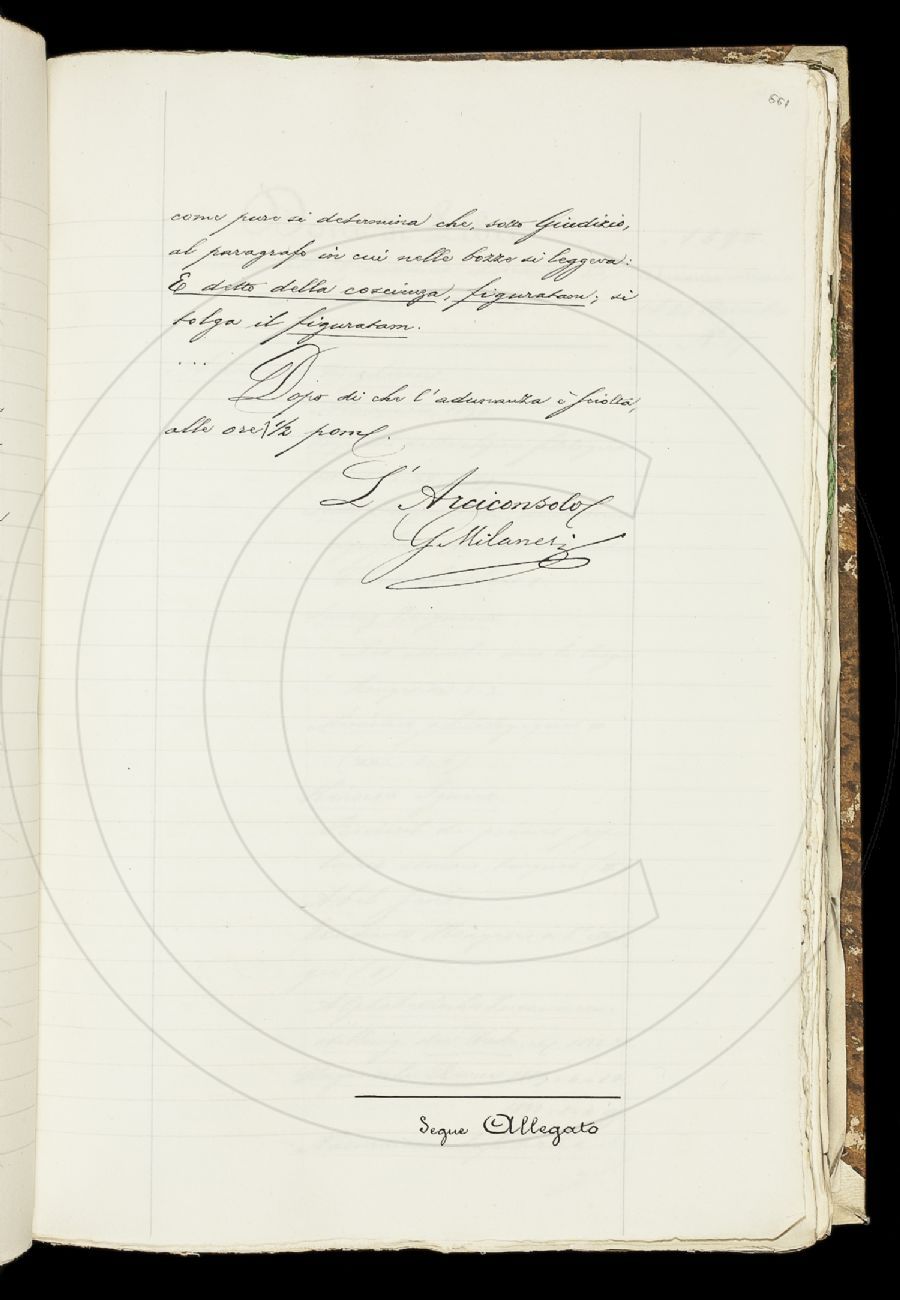 661
come pure si determina che, sotto Giudizio,
al paragrafo in cui nelle bozze si leggeva:
E detto della coscienza, figuratam; si
tolga il figuratam.
...
Dopo di che l'adunanza è sciolta,
alle ore 1/2 pom.
L'Arciconsolo
G. Milanesi
Segue Allegato